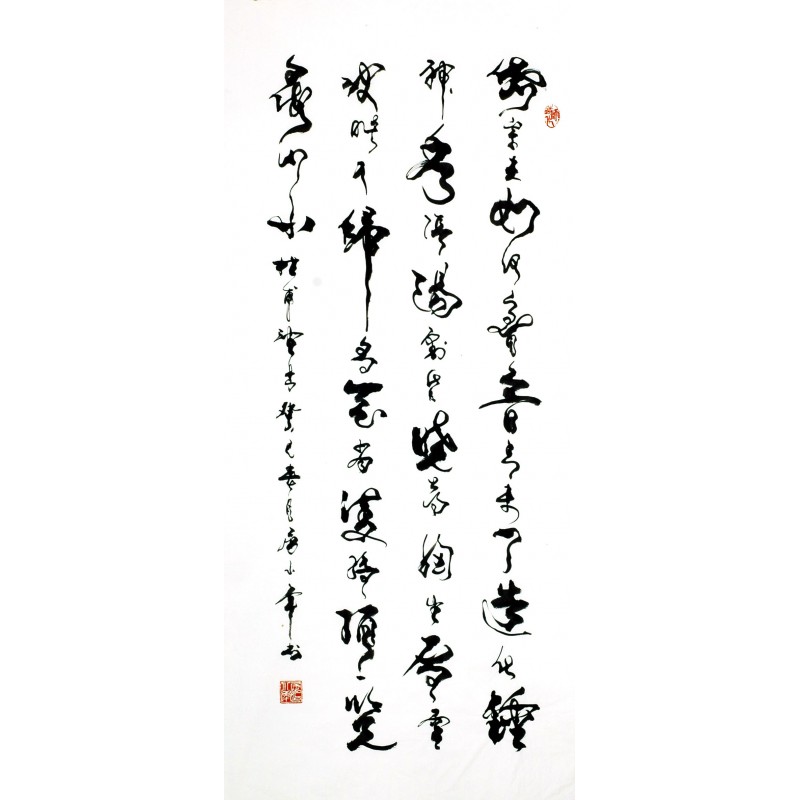 岱宗夫如何齊魯青未了造化鍾
神秀陰陽割昏曉蕩胸生層雲
決眥入歸鳥會當凌絕頂一覽
眾山小 杜甫望岳癸巳春月